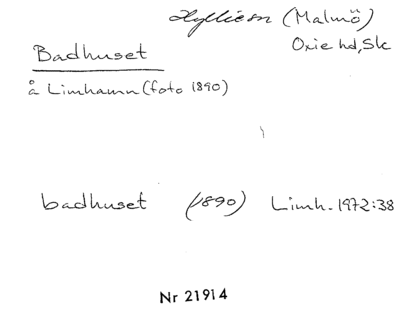 Hyllie sn (Malmö)
Oxie hd, Sk
Badhuset
å Limhamn (foto 1890)
badhuset (1890) Limh. 1972:38
Nr 21914